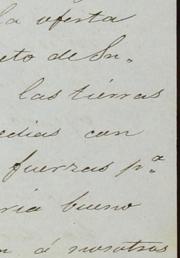 la oferta
eto de Su-
las tierras
edias con
fuerzas pª
ria bueno
n á nosotros